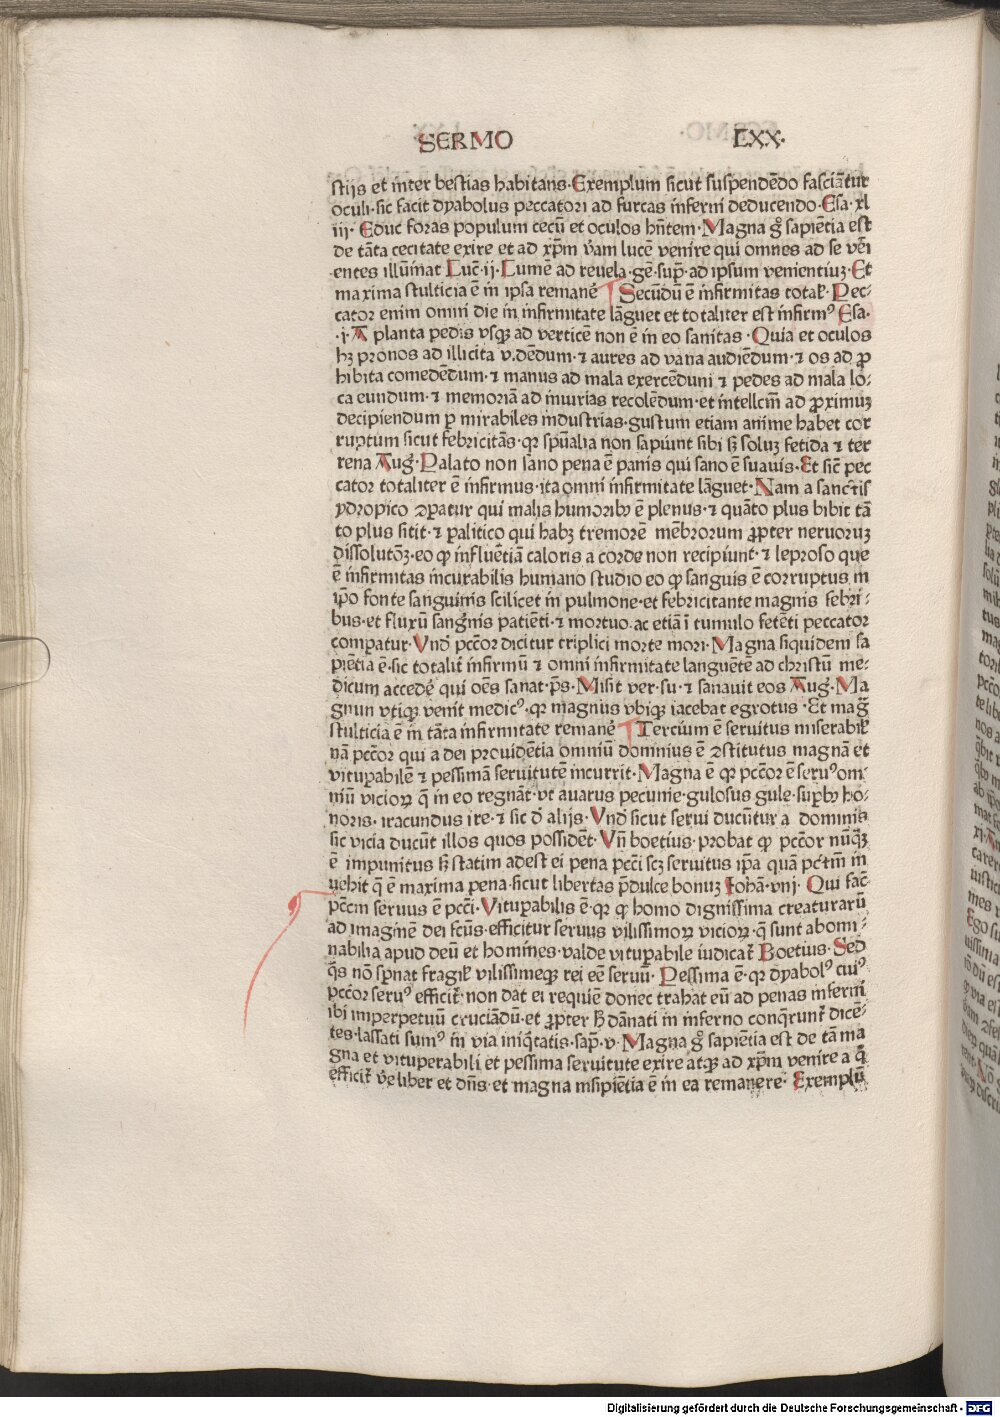 SERMO LXX.
stijs et inter bestias habitans·Exemplum sicut suspendēdo fasciātur
oculi·sic facit dyabolus peccatori ad furcas inferni deducendo·Esa·xl
iij· Educ foras populum cecū et oculos hñtem·Magna gͦ sapiētia est
de tāta cecitate exire et ad xp̄m v̄am lucē venire qui omnes ad se vēi
entes illūinat Luc̄·ij·Lumē ad reuela·gē·sup̄·ad ipsum venientiuꝫ·Et
maxima stulticia ē in ipsa remanē ¶ Secūdū ē infirmitas total̄·Pec⸗
cator enim omni die in infirmitate lāguet et totaliter est infirmꝰ Esa·
·i·A planta pedis vsqꝫ ad verticē non ē in eo sanitas·Quia et oculos
hꝫ pronos ad illicita v.dēdum·⁊ aures ad vana audiēdum·⁊ os ad ꝓ
hibita comedēdum·⁊ manus ad mala exercēduni ⁊ pedes ad mala lo⸗
ca eundum·⁊ memoriā ad iniurias recolēdum·et intellcm̄ ad ꝓximuꝫ
decipiendum p mirabiles industrias·gustum etiam anime habet cor
ruptum sicut febricitās·qꝛ sp̄nalia non sapiunt sibi sꝫ soluꝫ fetida ⁊ ter
rena Auḡ·Palato non sano pena ē panis qui sano ē suauis·Et sic̄ pec
cator totaliter ē infirmus·ita omni infirmitate lāguet·Nam a sanctis
ydropico ꝯpatur qui malis humoribꝰ ē plenus·⁊ quāto plus bibit tā
to plus sitit·⁊ palitico qui habꝫ tremorē mēbrorum ꝓpter neruoruꝫ
dissolutōꝫ·eo ꝙ influētiā caloris a corde non recipiunt·⁊ leproso que
ē infirmitas incurabilis humano studio eo ꝙ sanguis ē corruptus in
ip̄o fonte sanguinis scilicet in pulmone·et febricitante magnis febri⸗
bus·et fluxū sanḡnis patiēti·⁊ mortuo·ac etiā ī tumulo fetēti peccator
compatur·Vnd̄ pcc̄or dicitur triplici morte mori·Magna siquidem sa
piētia ē·sic totalit̄ infirmū ⁊ omni infirmitate languētē ad christū me⸗
dicum accedē qui oēs sanat·p̄s·Misit ver·su·⁊ sanauit eos Auḡ·Ma
gnun vtiqꝫ venit medicꝰ·qꝛ magnus vbiqꝫ iacebat egrotus·Et maḡ
stulticia ē in tāta infirmitate remanē ¶ Tercium ē seruitus miserabil̄
nā pcc̄or qui a dei prouidētia omniū domnius ē ꝯstitutus magnā et
vitupabilē ⁊ pessimā seruitutē incurrit·Magna ē qꝛ pcc̄or ē seruꝰ om
niū vicioꝝ q̄ in eo regnāt·vt auarus pecunie·gulosus gule·supbꝰ ho⸗
noris·iracundus ire·⁊ sic d̄ alijs·Vnd̄ sicut serui ducūtur a dominis
sic vicia ducūt illos quos possidēt·Vñ boetius·probat ꝙ pcc̄or nūq̄ꝫ
ē impunitus sꝫ statim adest ei pena pcc̄i scꝫ seruitus ip̄a quā pctm̄ in
uehit q̄ ē maxima pena·sicut libertas p̄dulce bonuꝫ Johā·viij· Qui fac̄
pc̄cm seruus ē pcc̄i·Vitupabilis ē·qꝛ ꝙ homo dignissima creaturarū
ad imaginē dei fcūs·efficitur seruus vilissimoꝝ vicioꝝ·q̄ sunt abomi⸗
nabilia apud deū et homines·valde vitupabile iudicat̄ Boetius·Sed
q̄s nō sp̄nat fragil̄ vilissimeqꝫ rei eē seruū· Pessima ē·qꝛ dyabolꝰ cuiꝰ
pcc̄or seruꝰ efficit̄·non dat ei requiē donec trahat eū ad penas inferni
ibi imperpetuū cruciādū·et ꝓpter ħ dānati in inferno conq̄runt̄ dicē⸗
tes·lassati sumꝰ in via iniq̄tatis·sap̄·v·Magna gͦ sapiētia est de tā ma
gna et vituperabili et pessima seruitute exire atqꝫ ad xp̄m venire a q̄
efficit̄ v̄e liber et dn̄s·et magna insipiētia ē in ea remanere· Exemplū
Digitalisierung gefördert durch die Deutsche Forschungsgemeinschaft - DFG